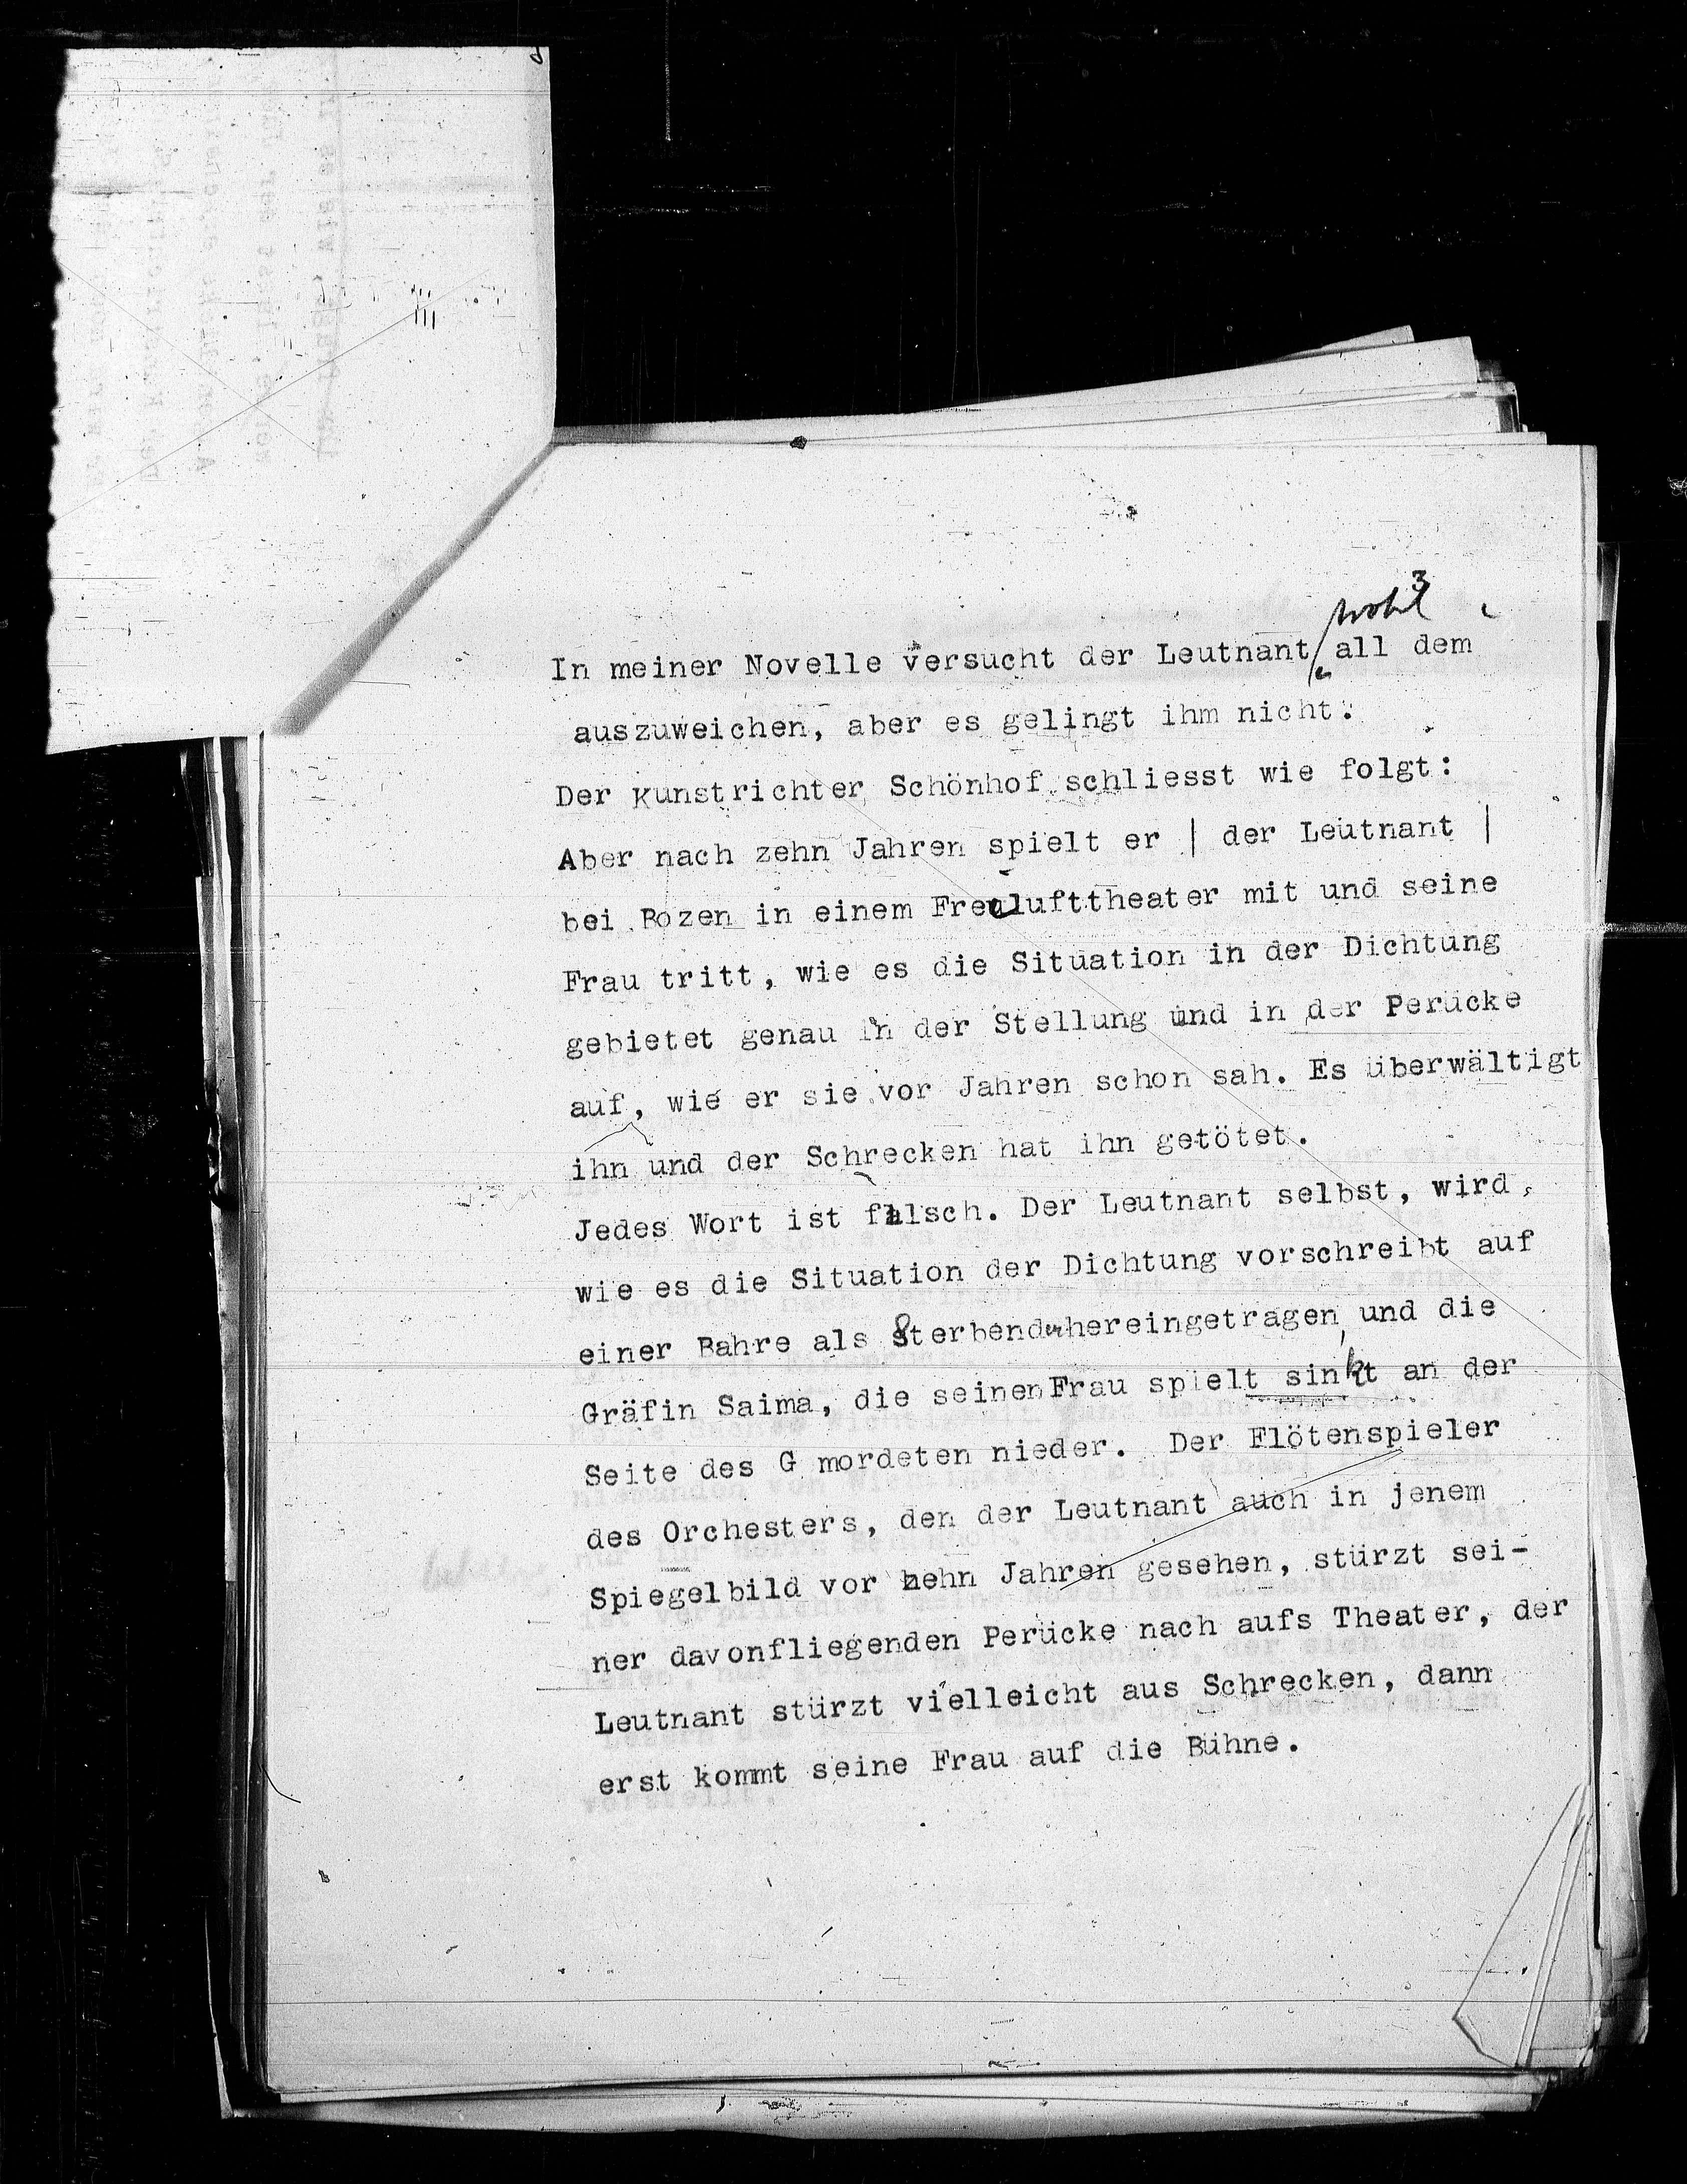 3
wohl
In meiner Novelle versucht der Leutnant all dem
auszuweichen, aber es gelingt ihm nicht.
Der Kunstrichter Schönhof schliesst wie folgt:
Aber nach zehn Jahren spielt er | der Leutnant |
bei Bozen in einem Freilufttheater mit und seine
Frau tritt, wie es die Situation in der Dichtung
gebietet genau in der Stellung und in der Perücke
auf, wie er sie vor Jahren schon sah. Es überwältigt
ihn und der Schrecken hat ihn getötet.
Jedes Wort ist falsch. Der Leutnant selbst, wird,
wie es die Situation der Dichtung vorschreibt auf
einer Bahre als Sterbender hereingetragen, und die
Gräfin Saima, die seinen Frau spielt sinkt an der
Seite des G mordeten nieder. Der Flötenspieler
des Orchesters, den der Leutnant auch in jenem
Spiegelbild vor zehn Jahren gesehen, stürzt sei-
ner davonfliegenden Perücke nach aufs Theater, der
Leutnant stürzt vielleicht aus Schrecken, dann
erst kommt seine Frau auf die Bühne.